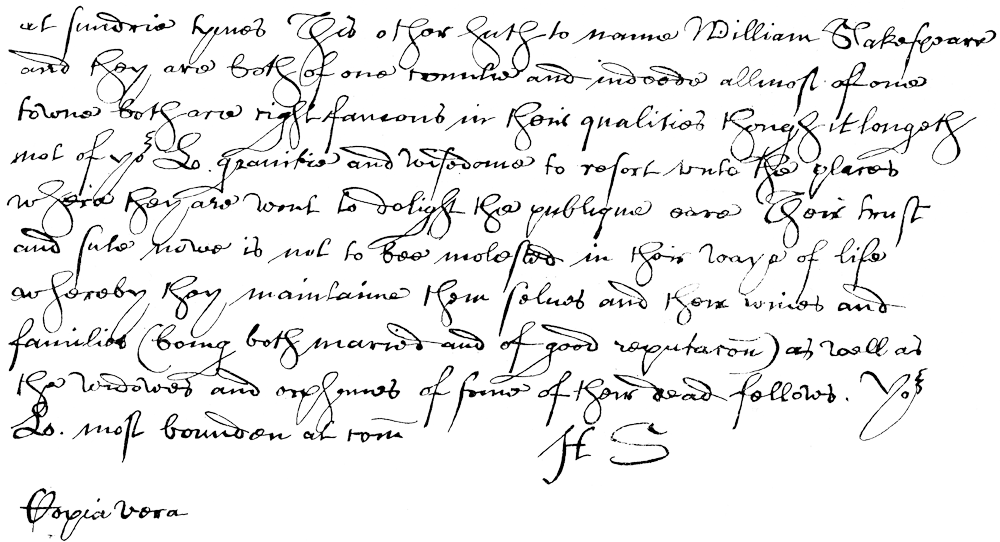 at sundrie tymes This other hath to name William Shakespeare
and they are both of one countie and indeede allmost of one
towne both are right famous in their qualities though it longeth
not of yoʳ Lo. grauitie and wisedome to resort vnto the places
where they are wont to delight the publique eare Their trust
and sute nowe is not to bee molested in their waye of life
whereby they maintaine them selues and their wiues and
families (being both maried and of good reputacōn) as well as
the widowes and orphanes of some of their dead fellows. Yoʳ
Lo. most bounden at com̄
H S
Copia vera